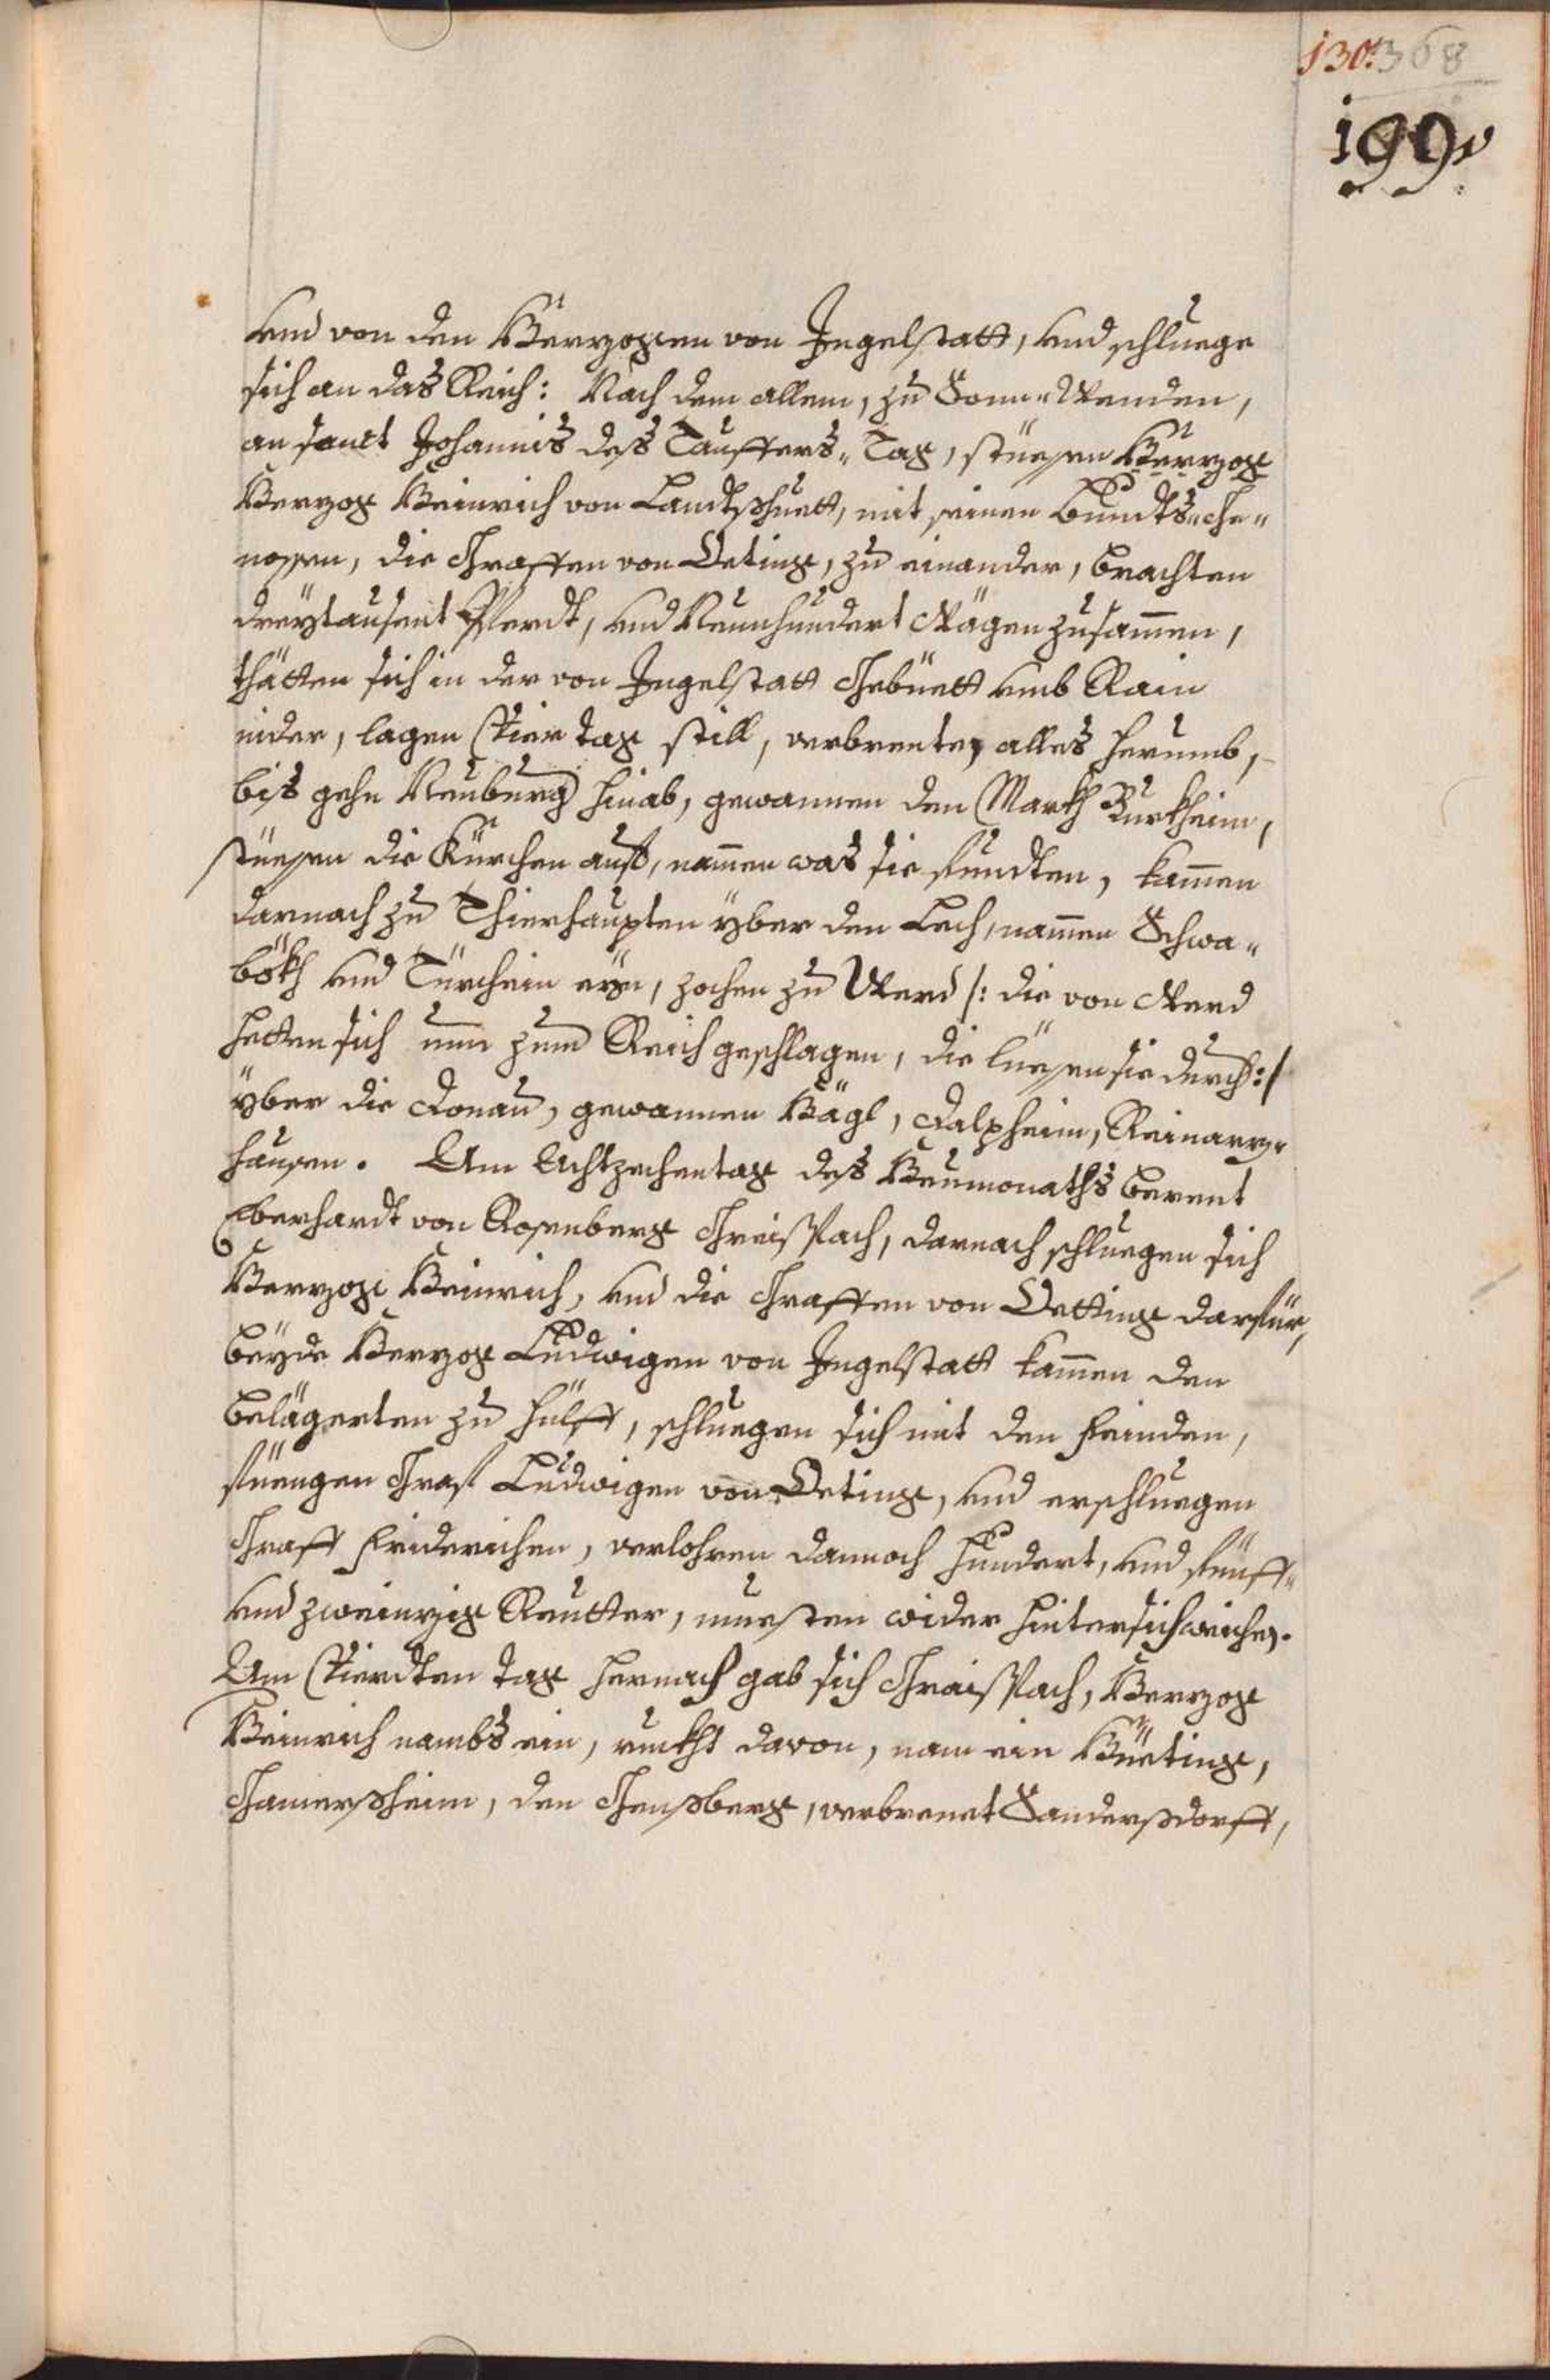 130. 368
199.
vnd von den Herzogen von Ingelstatt, vnd schluege
sich an das Reich: Nach dem allem, zu Sonn-Wenden,
an sanct Johannis des Tauffers-Tag, stüessen Herzog
Herzog Heinrich von Landtshuett, mit seinen Bundts-Ge-
nossen, die Graffen von Oeting, zu einander, brachten
dreytausent Pferdt, vnd Neunhundert Wägen zusammen,
thätten sich in der von Ingelstatt Gebüett vmb Rain
nider, lagen Vier tag still, verbrenten alles herumb,
bis gehn Neuburg hinab, gewannen den Markh Burkheim,
stüessen die Kürchen auf, namen was sie fundten, kamen
darnach zu Thierhaupten yber den Lech, namen Schwa-
bökh vnd Türcheim eyn, zochen zu Werd /: die von Werd
hetten sich nun zum Reich geschlagen, die liessen sie durch :/
yber die Donau, gewannen Hägl, Galxheim, Reinarz-
hausen. Am Achtzehentag des Heumonaths berent
Eberhardt von Rosenberg Graispach, darnach schluegen sich
Herzog Heinrich, vnd die Graffen von Oetting darfür,
beyde Herzog Ludwigen von Ingelstatt kamen den
belägerten zu hülff, schluegen sich mit den feinden,
füengen Graf Ludwigen von Oeting, vnd erschluegen
Graff Friderichen, verlohren dannoch hundert, vnd fünff-
vnd zweinzig Reutter, muesten wider hintersich weichen.
Am Vierdten tag hernach gab sich Graispach, Herzog
Heinrich nambs ein, rukht davon, nam ein Hüeting,
Gamersheim, den Geussberg, verbrenet Sanderssdorff,